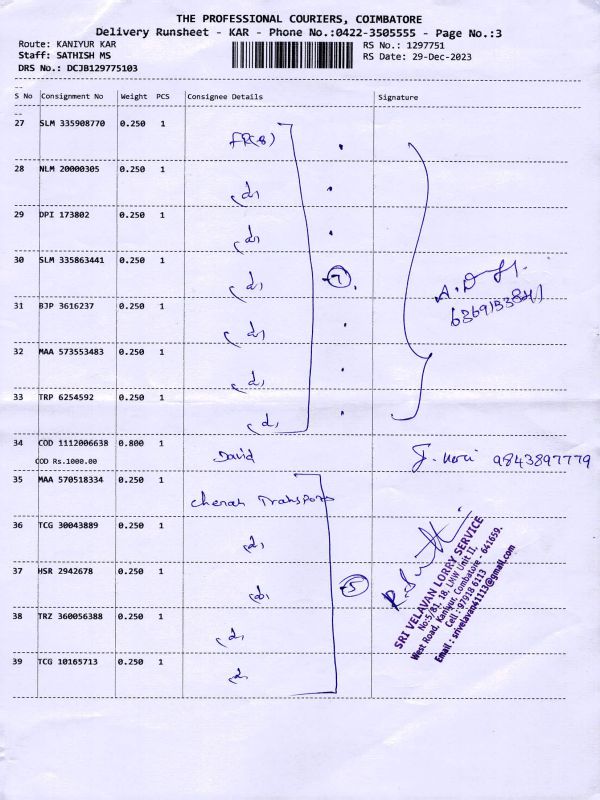 THE PROFESSIONAL COURIERS, COIMBATORE
Delivery Runsheet - KAR - Phone No.:0422-3505555 - Page No.:3
Route: KANIYUR KAR
RS No.: 1297751
Staff: SATHISH MS
RS Date: 29-Dec-2023
DRS No.: DCJB129775103
S No Consignment No Weight PCS Consignee Details Signature
27 SLM 335908770 0.250 1
28 NLM 20000305 0.250 1
29 DPI 173802 0.250 1
30 SLM 335863441 0.250 1
7
31 BJP 3616237 0.250 1
32 MAA 573553483 0.250 1
33 TRP 6254592 0.250 1
34 COD 1112006638 0.800 1 David 9843897779
COD Rs.1000.00
35 MAA 570518334 0.250 1 Transport
36 TCG 30043889 0.250 1
37 HSR 2942678 0.250 1 5
38 TRZ 360056388 0.250 1
39 TCG 10165713 0.250 1
SRI VELAVAN LORRY SERVICE
No:5/81, 18, LMW Unit II,
West Road, Kaniyur, Coimbatore - 641659.
Cell : 97918 6113
Email : srivelavan41113@gmail.com